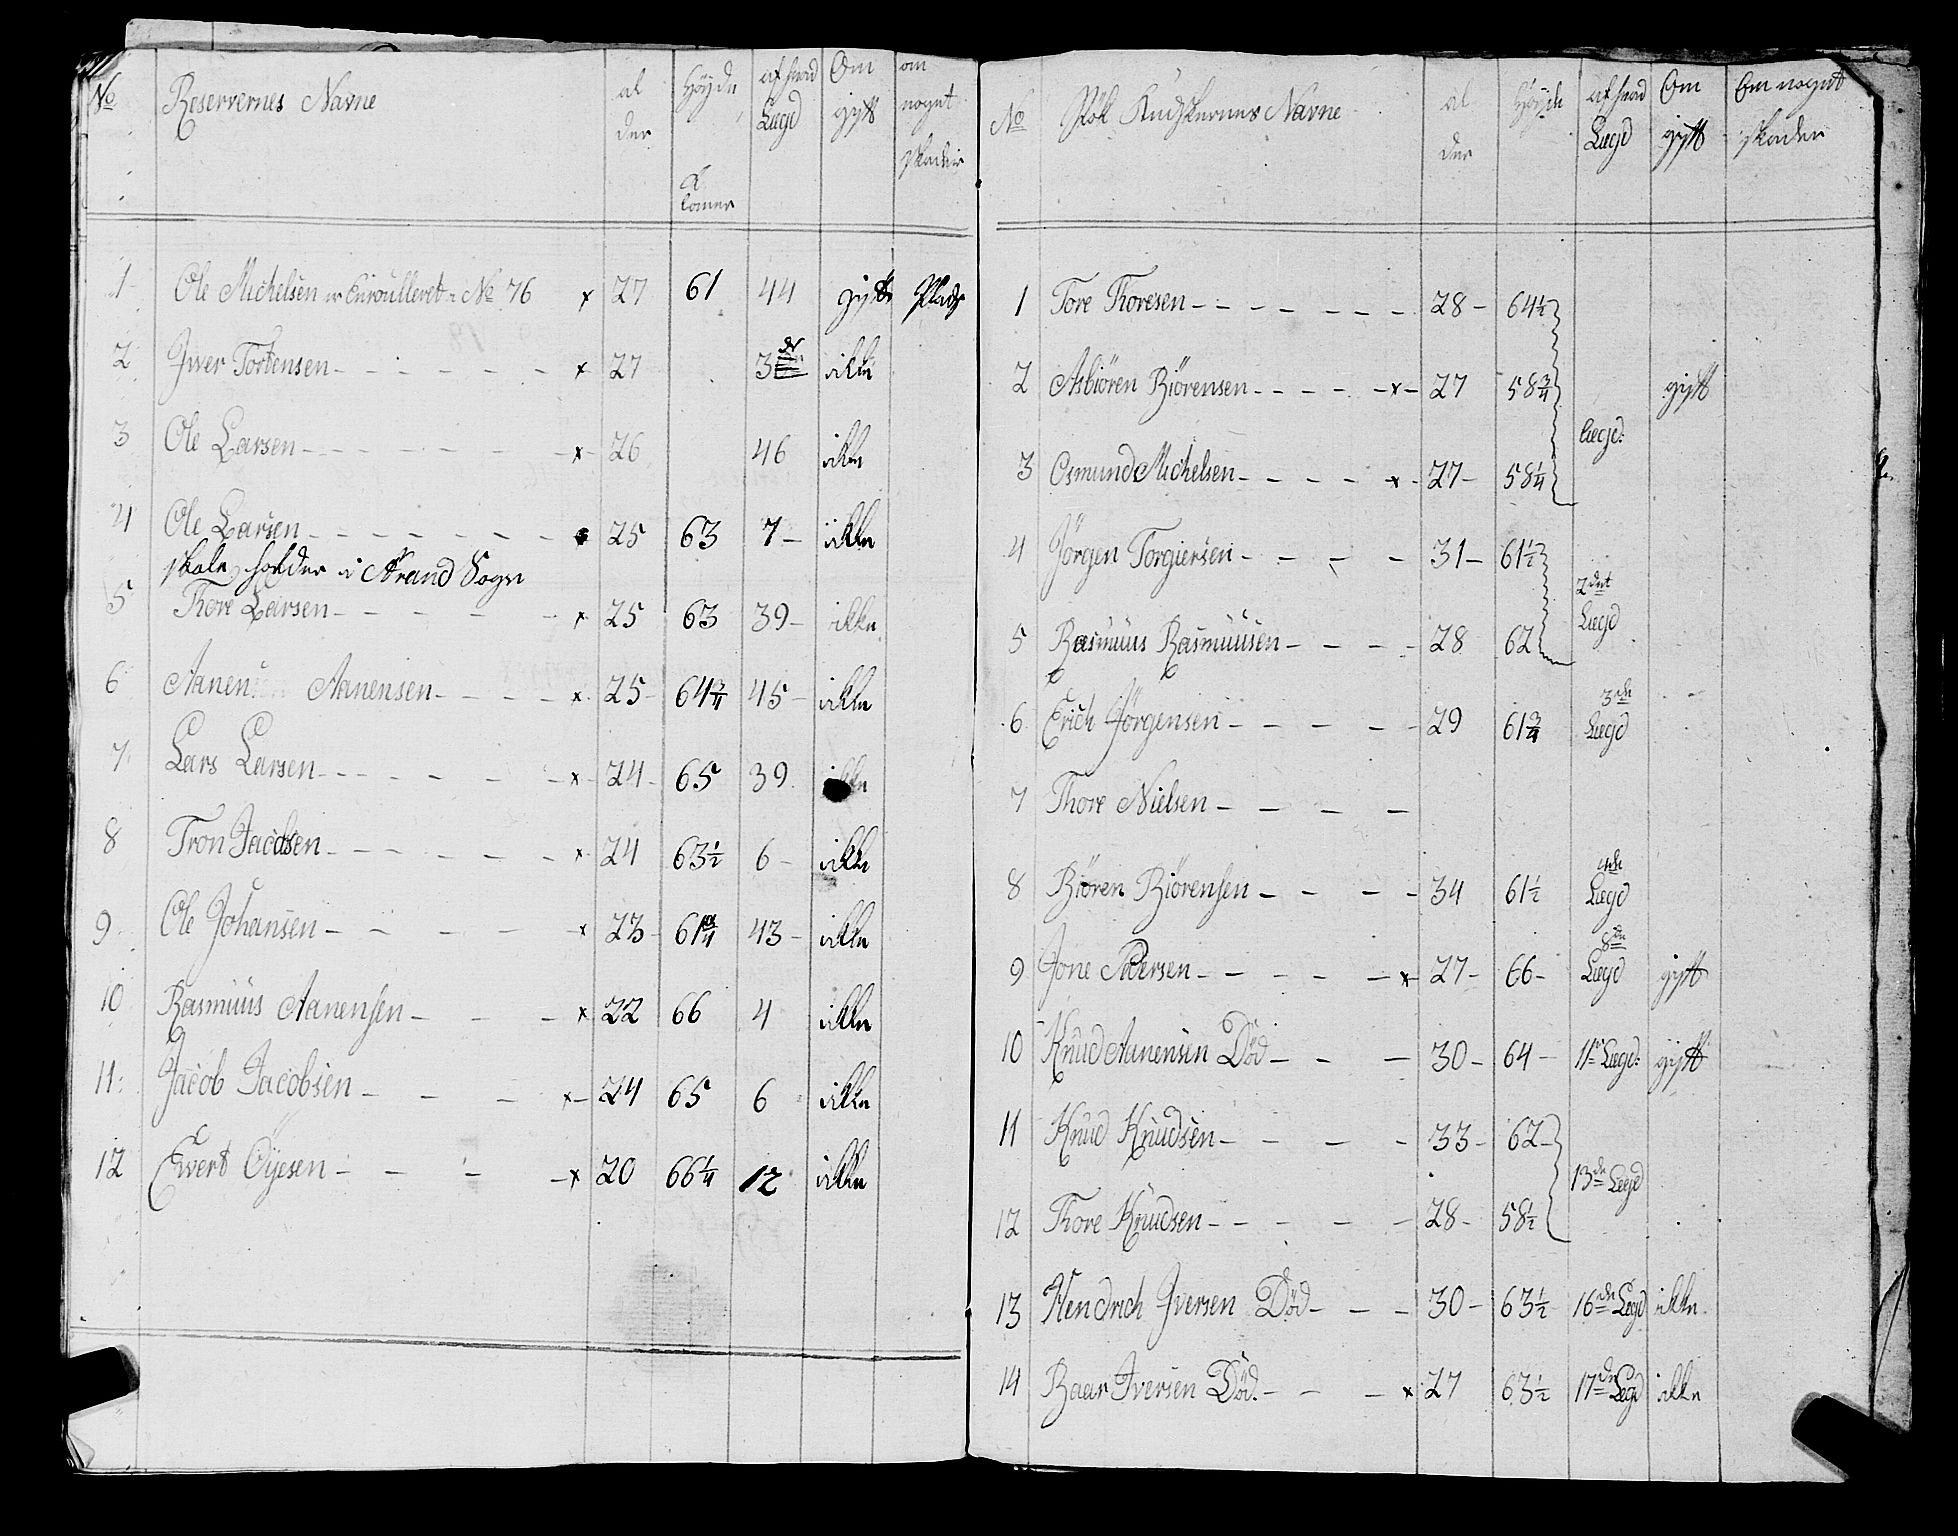 No Reservernes Navne al der Höyde Tomer af hvad Lægd Om gift om noget skader
1 Ole Michelsen er Enroulleret No 76 x 27 61 44 gift
2 Iver Tortensen x 27 3de ikke
3 Ole Larsen x 26 46 ikke
4 Ole Larsen 25 63 7 ikke
skole holder i Strand Sogn
5 Thore Larsen x 25 63 39 ikke
6 Aanen Aanensen x 25 64 3/4 45 ikke
7 Lars Larsen x 24 65 39 ikke
8 Tron Jacobsen x 24 63 1/2 6 ikke
9 Ole Johansen x 23 61 3/4 43 ikke
10 Rasmuus Aanensen x 22 66 4 ikke
11 Jacob Jacobsen x 24 65 6 ikke
12 Ewert Öÿesen x 20 66 1/4 12 ikke
No Kudskernes Navne al der Höyde af hvad Lægd Om gift Om noget skader
1 Tore Thoresen 28 64 1/2
2 Asbiören Biörensen x 27 58 3/4 gift
Lægd:
3 Osmund Michelsen x 27 58 1/4
4 Jörgen Torgiersen 31 61 1/2
2det Lægd
5 Rasmuus Rasmuusen 28 62
6 Erich Jörgensen 29 61 3/4 3de Lægd
7 Thore Nielsen
8 Biören Biörensen 34 61 1/2 4de Lægd
9 Jone Pedersen x 27 66 8de Lægd gift
10 Knud Aanensen Död 30 64 11te Lægd: gift
11 Knud Knudsen 33 62
13de Lægd
12 Thore Knudsen 28 58 1/2
13 Hendrich Iversen Död 30 63 1/2 16de Lægd ikke
14 Baar Iversen Död x 27 63 1/2 17de Lægd ikke